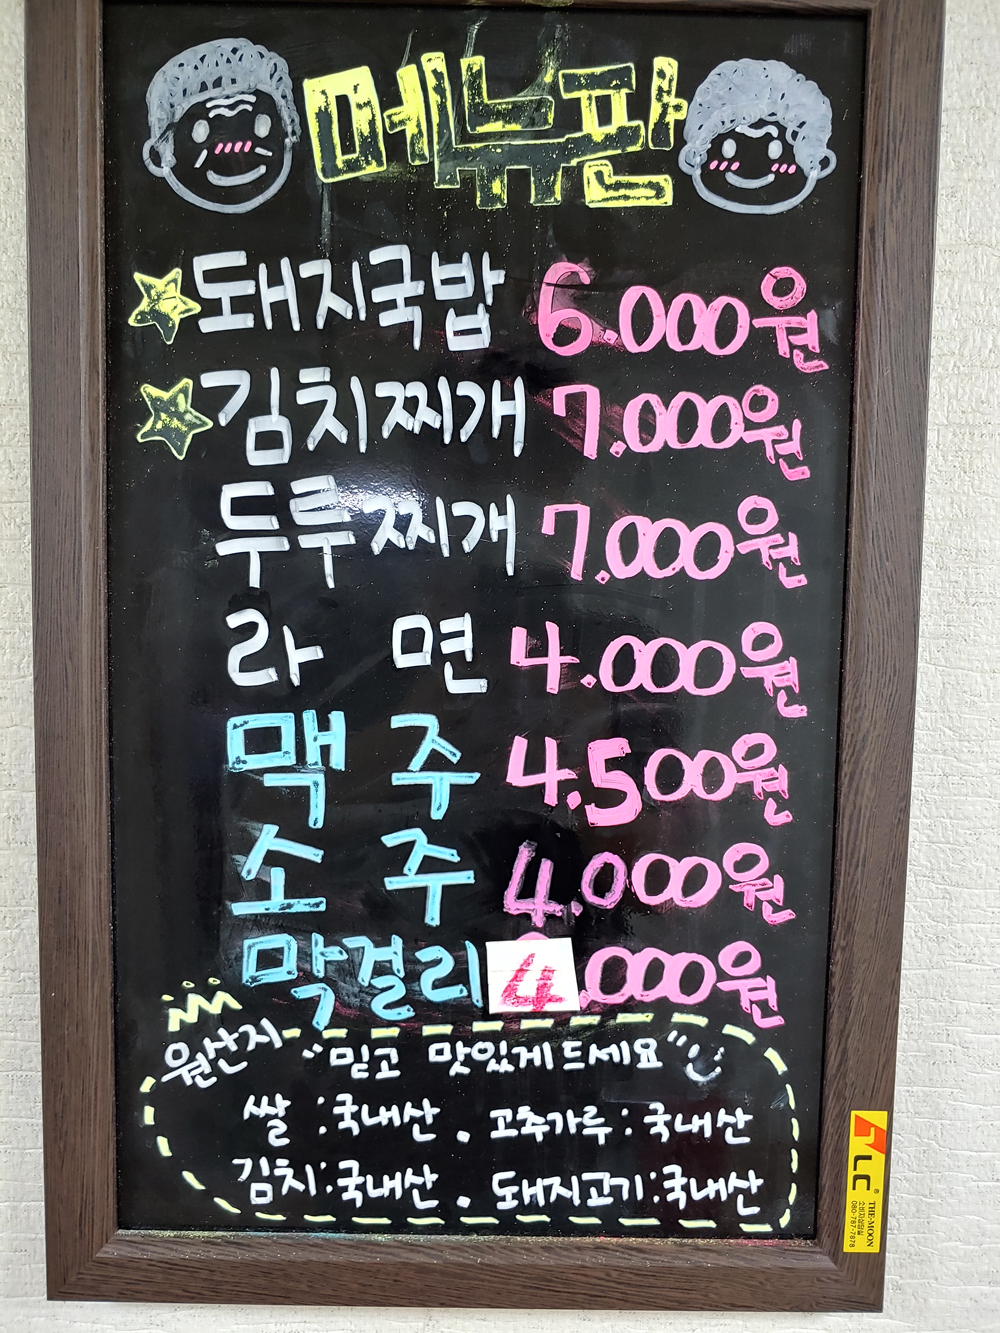 메뉴판
돼지국밥 6.000원
김치찌개 7.000원
두루찌개 7.000원
라면 4.000원
맥주 4.500원
소주 4.000원
막걸리 4.000원
원산지 "믿고 맛있게 드세요"
쌀 : 국내산 . 고추가루 : 국내산
김치 : 국내산 . 돼지고기 : 국내산
LC ®
THE-MOON
소비자상담실
080-787-7878